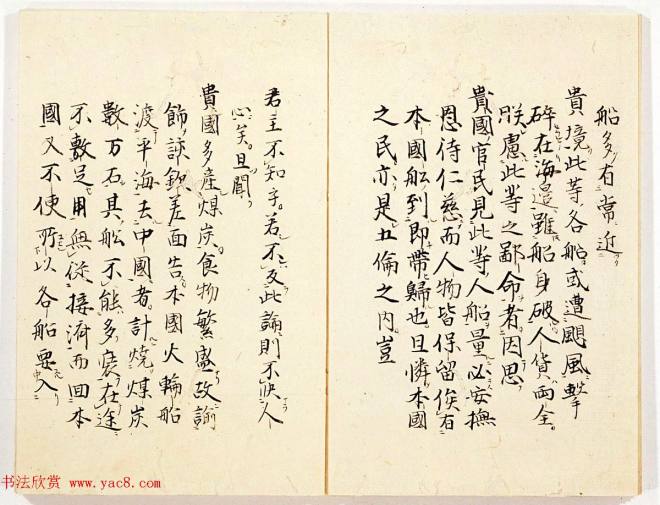 船多有常近
貴境此等各船或遭颶風擊
碎在海邉雖船身破人貨両全
朕慮此等之鄙命者因思
貴國官民見此等人船量必安撫
恩待仁慈而人物皆保留俟有
本國舩到即帯歸也且憐本國
之民亦是五倫之内豈
君主不知乎若不及此論則不快人
心矣且聞
貴國多産煤炭食物繁盛故諭
飾諒欽差面告本國火輪船
渡平海去中國者計燒煤炭
數万石其舩不能多裝在途
不敷足用無從接済而回本
國又不便所以各船要入
书法欣赏 www.yac8.com